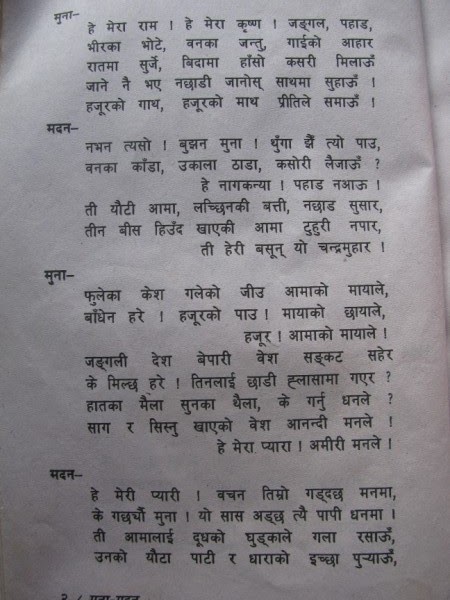 मुना–
हे मेरा राम ! हे मेरा कृष्ण ! जङ्गल, पहाड,
भीरका भोटे, वनका जन्तु, गाईको आहार
रातमा सुर्जे, बिदामा हाँसो कसरी मिलाऊँ
जाने नै भए नछाडी जानोस् साथमा सुहाऊँ ।
हजूरको गाथ, हजूरको माथ प्रीतिले समाऊँ ।
मदन–
नभन त्यसो ! बुझन मुना ! थुँगा झैं त्यो पाउ,
वनका काँडा, उकाला ठाडा, कसोरी लैजाऊँ ?
हे नागकन्या ! पहाड नआऊ !
ती यौटी आमा, लच्छिनकी बत्ती, नछाड सुसार,
तीन बीस हिउँद खाएकी आमा टुहुरी नपार,
ती हेरी बसून् यो चन्द्रमुहार !
मुना–
फुलेका केश गलेको जीउ आमाको मायाले,
बाँधेन हरे ! हजूरको पाउ ! मायाको छायाले,
हजूर ! आमाको मायाले !
जङ्गली देश बेपारी वेश सङ्कट सहेर
के मिल्छ हरे ! तिनलाई छाडी ह्लासामा गएर ?
हातका मैला सुनका थैला, के गर्नु धनले ?
साग र सिस्नु खाएको वेश आनन्दी मनले !
हे मेरा प्यारा ! अमीरी मनले !
मदन–
हे मेरी प्यारी ! वचन तिम्रो गड्दछ मनमा,
के गर्छ्यौ मुना ! यो सास अड्छ त्यै पापी धनमा !
ती आमालाई दूधको घुड्काले गला रसाऊँ,
उनको यौटा पाटी र धाराको इच्छा पुऱ्याऊँ,